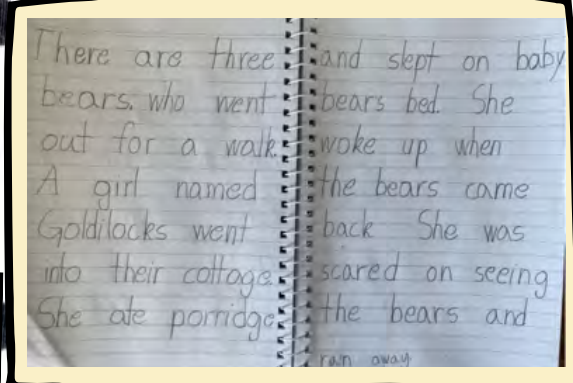 There are three
bears. who went
out for a walk.
A girl named
Goldilocks went
into their cottage.
She ate porridge
and slept on baby
bears bed. She
woke up when
the bears came
back She was
scared on seeing
the bears and
ran away